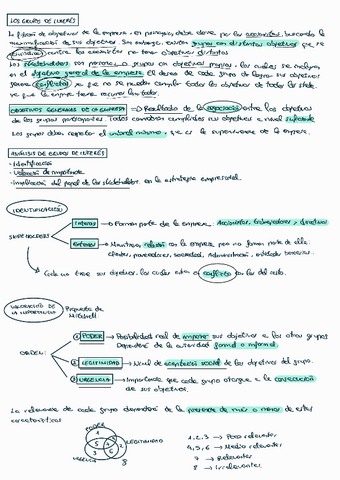 LOS GRUPOS DE INTERÉS
La fijación de objetivos de la empresa, en principio, debe darse por los accionistas, buscando la
maximización de sus objetivos. Sin embargo, existen grupos con distintos objetivos que se
Los stakeholders son personas o grupos con objetivos propios, los cuales se incluyen
en el objetivo general de la empresa. El deseo de cada grupo de lograr sus objetivos
genera conflictos, ya que no se pueden cumplir todos los objetivos de todos los stake.
ya que la empresa tiene recursos limitados.
OBJETIVOS GENERALES DE LA EMPRESA → Resultado de la negociación entre los objetivos
de los grupos participantes. Todos
Los grupos deben respetar el umbral mínimo, que es la supervivencia de la empresa.
ANÁLISIS DE GRUPOS DE INTERÉS
- Identificación
- Valoración de importancia
- Implicación del papel de los stakeholders en la estrategia empresarial.
IDENTIFICACIÓN
STAKEHOLDERS
Internos → Forman parte de la empresa: Accionistas, trabajadores y directivos
Externos → Mantienen relación con la empresa pero no forman parte de ella:
clientes, proveedores, sociedad, Administración, entidades bancarias.
Cada uno tiene sus objetivos, los cuales entran en conflicto con los del resto.
VALORACIÓN DE LA IMPORTANCIA
Propuesta de Mitchell
ORDEN:
1 PODER → Posibilidad real de imponer sus objetivos a los otros grupos
Dependerá de la autoridad formal o informal.
2 LEGITIMIDAD → Nivel de aceptación social de los objetivos del grupo.
3 URGENCIA → Importancia que cada grupo otorgue a la consecución
de sus objetivos.
La relevancia de cada grupo dependerá de la presencia de más o menos de estas
características
PODER
LEGITIMIDAD
URGENCIA
8
1, 2, 3 → Poco relevantes
4, 5, 6 → Medio relevantes
7 → Relevantes
8 → Irrelevantes